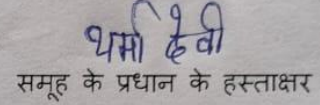 थर्मा देवी
समूह के प्रधान के हस्ताक्षर